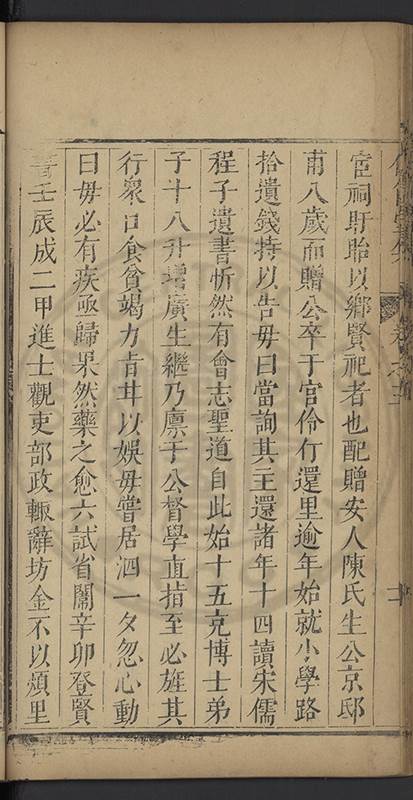 宦祠盱眙以鄉賢祀者也配贈安人陳氏生公京邸
甫八歲而贈公卒于官伶仃還里逾年始就小學路
拾遺錢持以告毋曰當詢其主還諸年十四讀宋儒
程子遺書忻然有會志聖道自此始十五充博士弟
子十八升增廣生繼乃廩于公督學直指至必旌其
行衆口食貧竭力肯甘以娛毋嘗居泗一夕忽心動
曰毋必有疾亟歸果然藥之愈六試省闈辛卯登賢
書壬辰成二甲進士觀吏部政輙辭坊金不以煩里